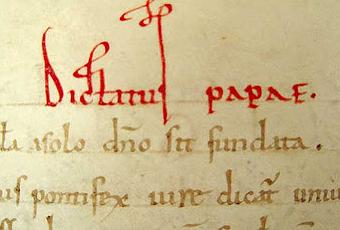 Dictatus papae.
a solo dño sit fundata.
pontifex iure dicat̃